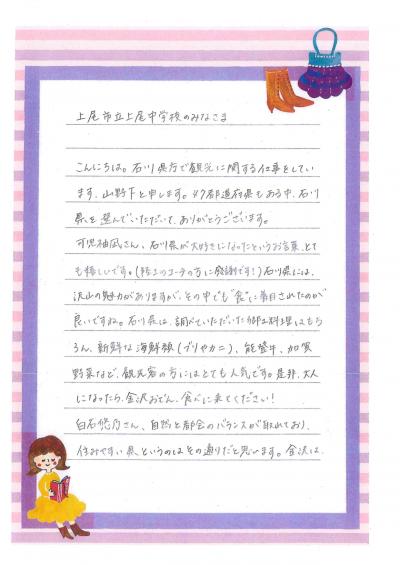 上尾市立上尾中学校のみなさま
こんにちは。石川県庁で観光に関する仕事をしてい
ます、山野下と申します。47都道府県もある中、石川
県を選んでいただいて、ありがとうございます。
可児柚凪さん、石川県が大好きになったというお言葉、とて
も嬉しいです。(珠洲のコーチの方に感謝です!)石川県には、
沢山の魅力がありますが、その中でも"食"に着目されたのが
良いですね。石川県は、調べていただいた郷土料理はもち
ろん、新鮮な海鮮類(ブリやカニ)、能登牛、加賀
野菜など、観光客の方にはとても人気です。是非、大人
になったら、金沢おでん、食べに来てください!
白石悠乃さん、自然と都会のバランスが取れており、
住みやすい県というのはその通りだと思います。金沢は、